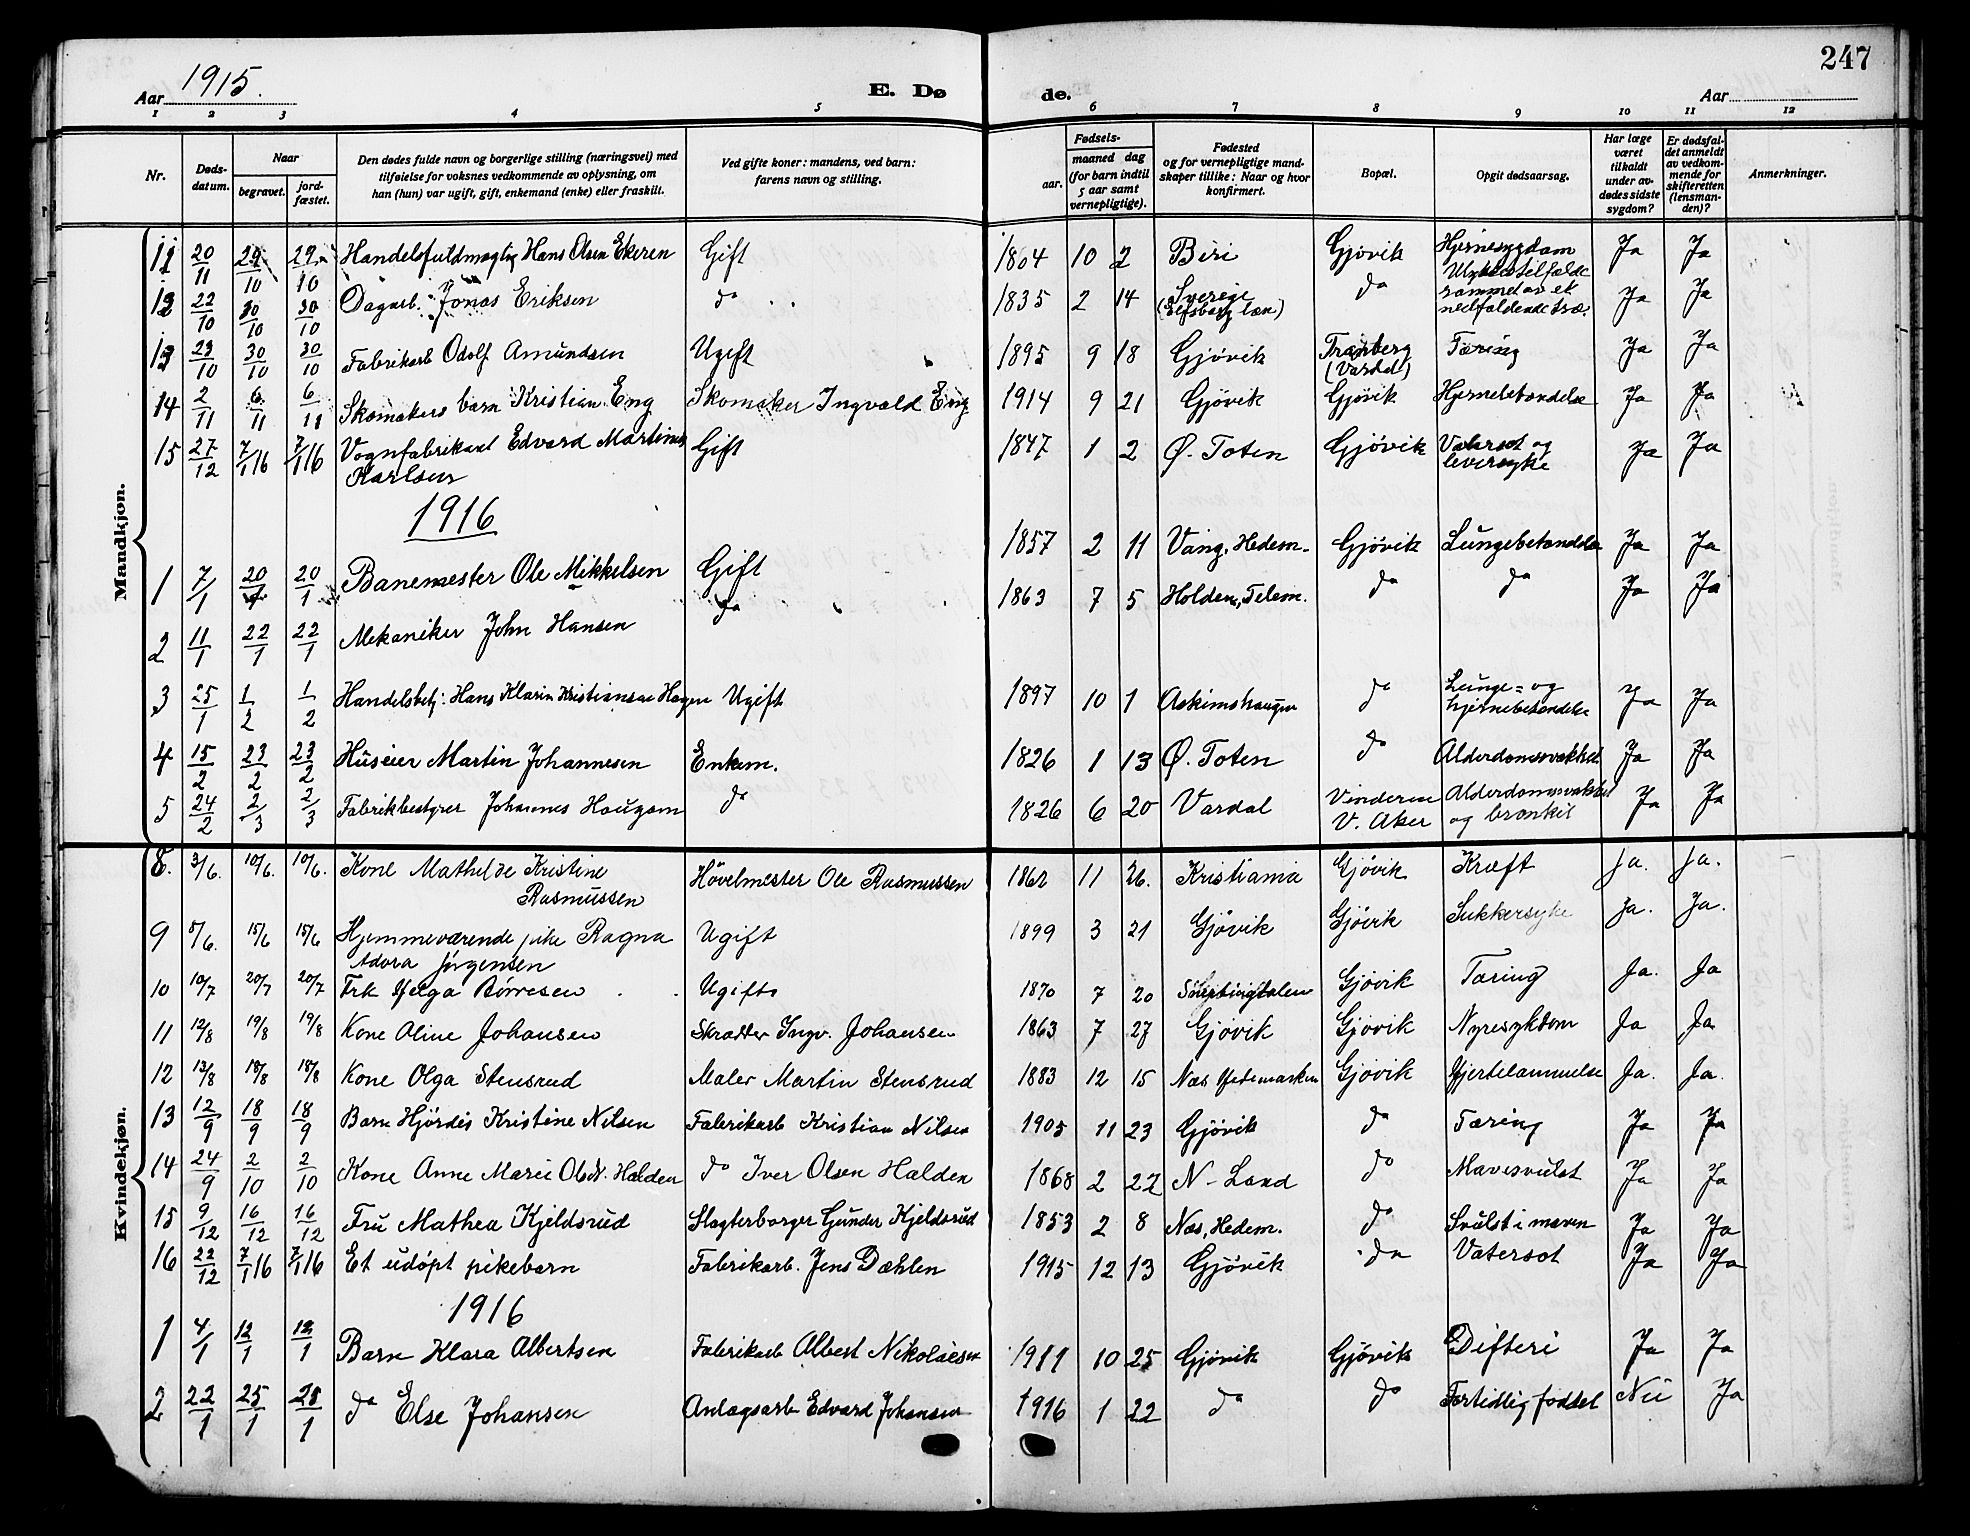 247
Aar 1915.
E. Døde.
Aar
1 2 3 4 5 6 7 8 9 10 11 12
Nr.
Døds-datum.
Naar
begravet.
jord-fæstet.
Den dødes fulde navn og borgerlige stilling (næringsvei) med
tilføielse for voksnes vedkommende av oplysning, om
han (hun) var ugift, gift, enkemand (enke) eller fraskilt.
Ved gifte koner: mandens, ved barn:
farens navn og stilling.
Fødsels-
aar.
maaned dag
(for barn indtil
5 aar samt
vernepligtige).
Fødested
og for vernepligtige mand-
skaper tillike: Naar og hvor
konfirmert.
Bopæl.
Opgit dødsaarsag.
Har læge
været
tilkaldt
under av-
dødes sidste
sygdom?
Er dødsfal-
det anmeldt
av vedkom-
mende for
skifteretten
(lensman-
den)?
Anmerkninger.
Mandkjøn.
11 20/11 29/10 29/10 Handelsfuldmægtig Hans Olsen Ekeren Gift 1864 10 2 Biri Gjøvik Hjernesygdom Ja Ja
12 22/10 30/10 30/10 Dagarb. Jonas Eriksen do 1835 2 14 Sverige (Elfsborg læn) do Ulykkestilfælde rammet av et nedfaldende træ. Ja Ja
13 23/10 30/10 30/10 Fabrikarb Odolf Amundsen Ugift 1895 9 18 Gjøvik Tranberg (Vardal) Tæring Ja Ja
14 2/11 6/11 6/11 Skomakers barn Kristian Eng Skomaker Ingvald Eng 1914 9 21 Gjøvik Gjøvik Hjernebetændelse Ja Ja
15 27/12 7/1 16 7/1 16 Vognfabrikant Edvard Martinus Karlsen Gift 1847 1 2 Ø. Toten Gjøvik Vatersot og leversyke Ja Ja
1916
1 7/1 20/1 20/1 Banemester Ole Mikkelsen Gift 1857 2 11 Vang, Hedem. Gjøvik Lungebetændelse Ja Ja
2 11/1 22/1 22/1 Mekaniker John Hansen do 1863 7 5 Holden, Telem. do do Ja Ja
3 25/1 1/2 1/2 Handelsbetj: Hans Klarin Kristiansen Hagen Ugift 1897 10 1 Askimshaugen do Lunge= og hjernebetændelse Ja Ja
4 15/2 23/2 23/2 Huseier Martin Johannesen Enkem. 1826 1 13 Ø. Toten do Alderdomssvakhet Ja Ja
5 24/2 2/3 2/3 Fabrikbestyrer Johannes Haugom do 1826 6 20 Vardal Vinderen V. Aker Alderdomssvakhet og bronkit Ja Ja
Kvindekjøn.
8. 3/6. 10/6. 10/6. Kone Mathilde Kristine Rasmussen Høvelmester Ole Rasmussen 1862 11 26. Kristiania Gjøvik Kræft Ja. Ja.
9 8/6. 15/6 15/6 Hjemmeværende pike Ragna Adora Jørgensen Ugift 1899 3 21 Gjøvik Gjøvik Sukkersyke Ja. Ja.
10 10/7 20/7 20/7 Frk Helga Børresen Ugift 1870 7 20 Gjøvik Tæring Ja. Ja
11 12/8 19/8 19/8 Kone Aline Johansen Skrædder Ingv. Johansen 1863 7 27 Gjøvik Gjøvik Nyresykdom Ja Ja.
12 13/8 18/8 18/8 Kone Olga Stensrud Maler Martin Stensrud 1883 12 15 Næs Hedemarken Gjøvik Hjertelammelse Ja. Ja.
13 12/9 18/9 18/9 Barn Hjørdis Kristine Nilsen Fabrikarb Kristian Nilsen 1905 11 23 Gjøvik do Tæring Ja Ja
14 24/9 2/10 2/10 Kone Anne Marie Olsdt. Halden do Iver Olsen Halden 1868 2 27 N- Land do Mavesvulst Ja Ja
15 9/12 16/12 16/12 Fru Mathea Kjeldsrud Slagterborger Gunder Kjeldsrud 1853 2 8 Næs, Hedem. do Svulst i maven Ja Ja
16 22/12 7/1 16 7/1 16 Et udøpt pikebarn Fabrikarb. Jens Dæhlen 1915 12 13 Gjøvik do Vatersot Ja Ja
1916
1 4/1 12/1 12/1 Barn Klara Albertsen Fabrikarb Albert Nikolaisen 1911 10 25 Gjøvik Gjøvik Difteri Ja Ja
2 22/1 25/1 25/1 do Else Johansen Anlægsarb Edvard Johansen 1916 1 22 do do Fortidligføddel Nei Ja